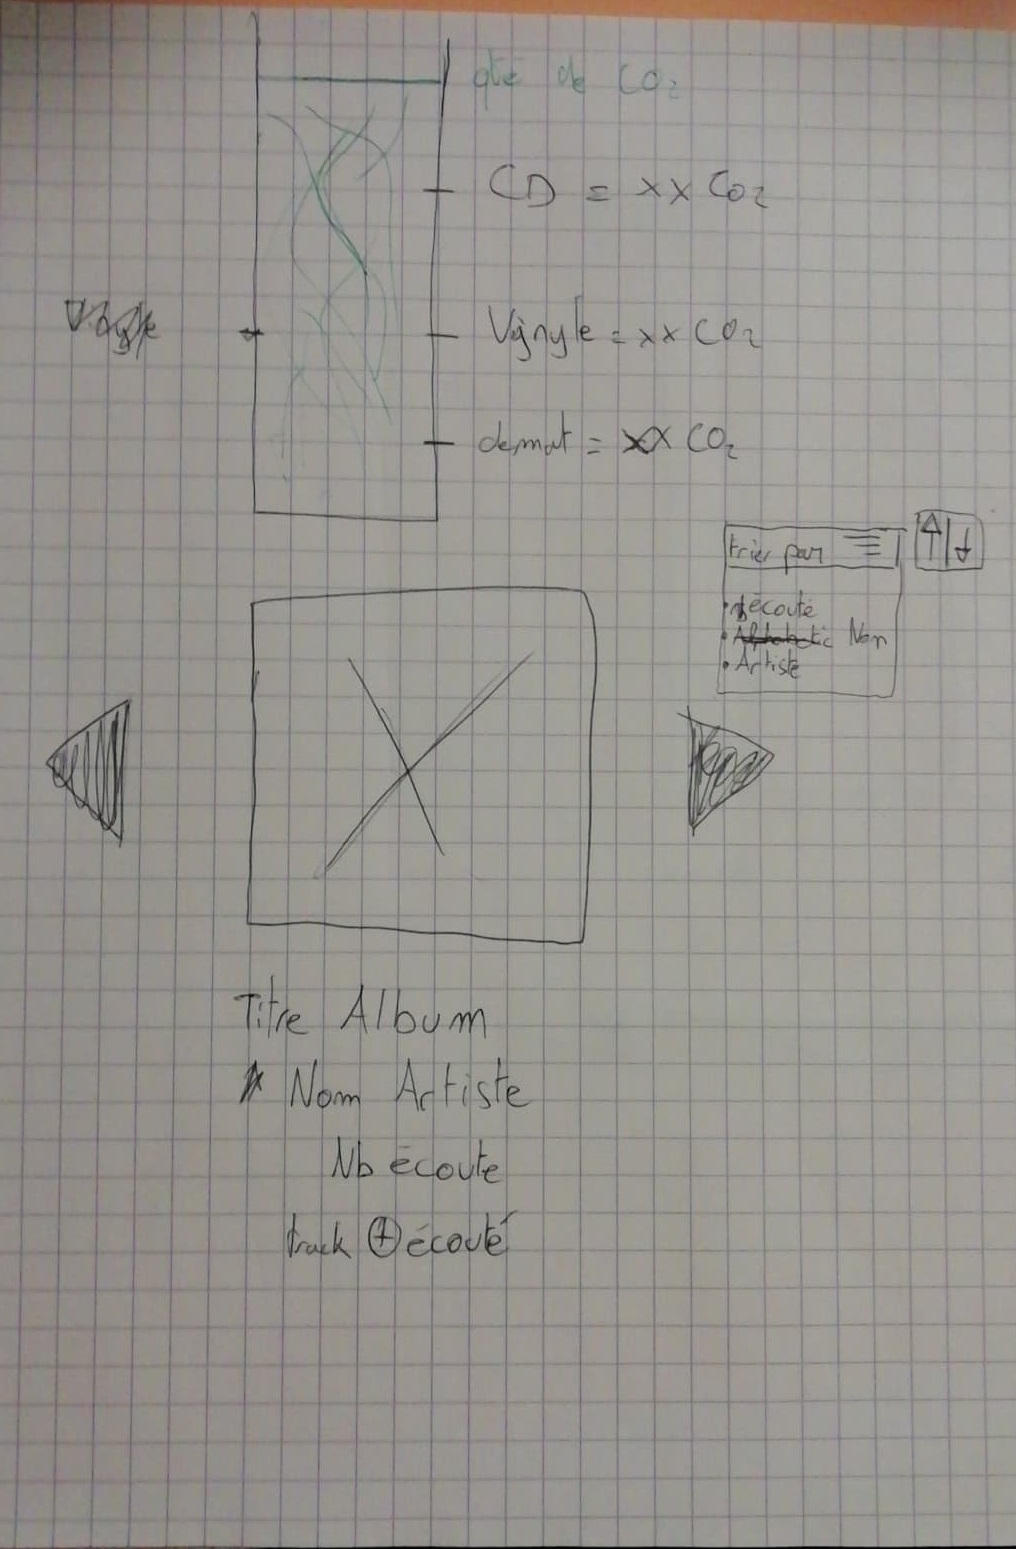 qté de CO₂
CD = xx CO₂
Vignyle = xx CO₂
demat = xx CO₂
trier par
écouté
Nom
Artiste
Titre Album
Nom Artiste
Nb écoute
track + écouté